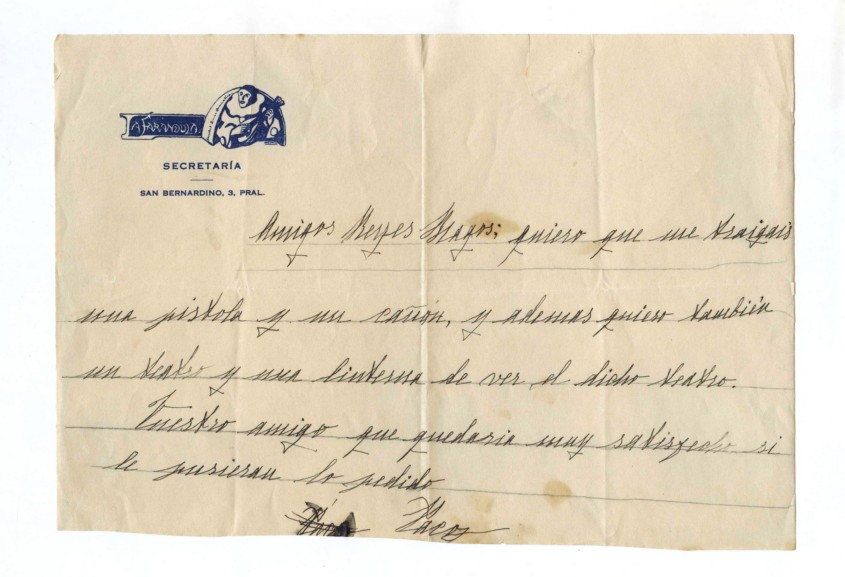 LA FARANDULA
SECRETARÍA
SAN BERNARDINO, 3, PRAL.
Amigos Reyes Magos; quiero que me traigais
una pistola y un cañón, y ademas quiero también
un teatro y una linterna de ver el dicho teatro.
Vuestro amigo que quedaria muy satisfecho si
le pusieran lo pedido
Paco